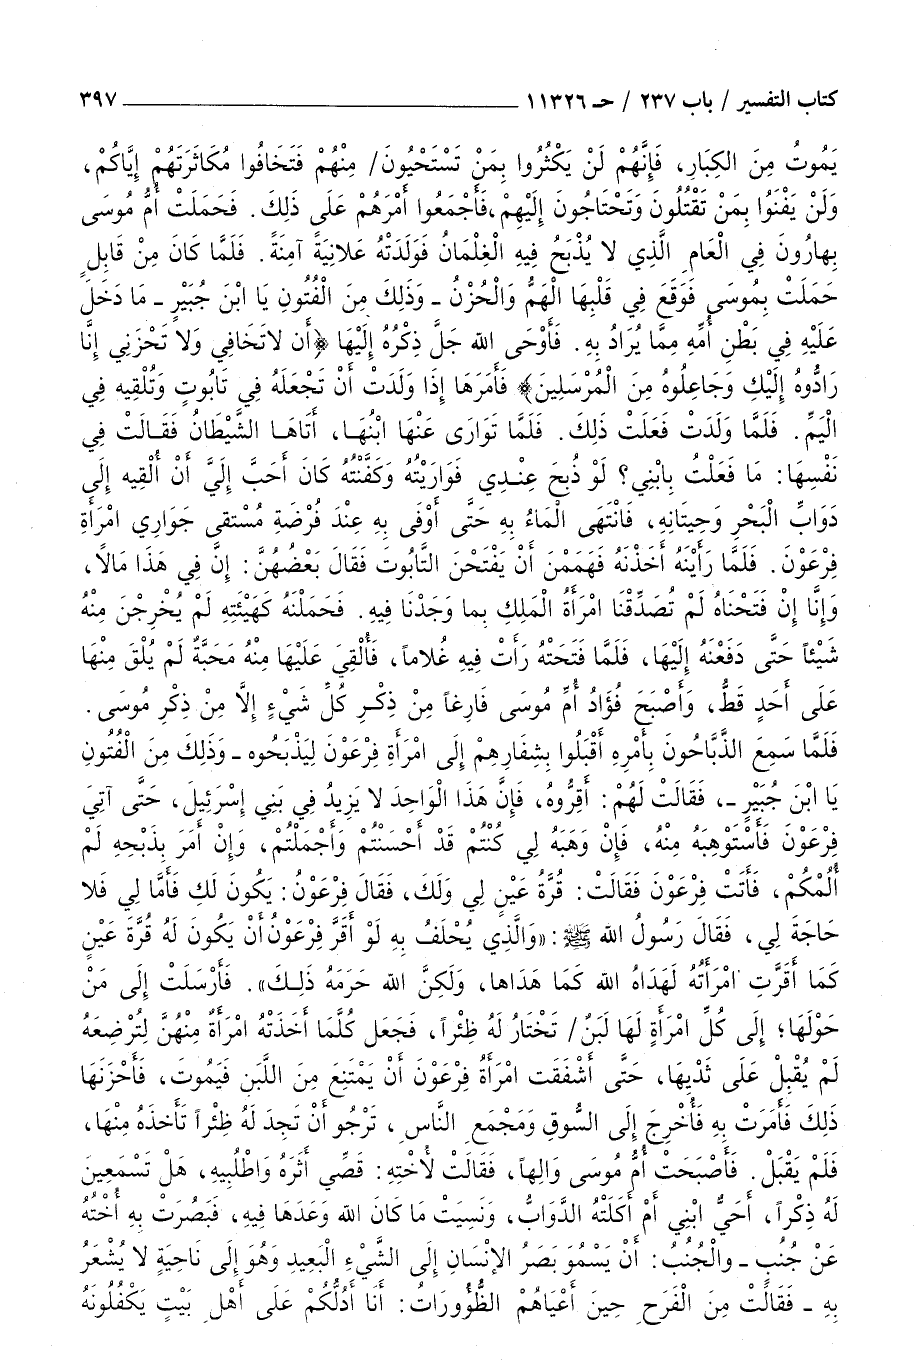 كتاب التفسير / باب ٢٣٧ / حـ ١١٣٢٦ ٣٩٧
يَمُوتُ مِنَ الكِبَارِ، فَإِنَّهُمْ لَنْ يَكْثُرُوا بِمَنْ تَسْتَحْيُونَ/ مِنْهُمْ فَتَخَافُوا مُكَاثَرَتَهُمْ إِيَّاكُمْ،
وَلَنْ يَفْنَوْا بِمَنْ تَقْتُلُونَ وَتَحْتَاجُونَ إِلَيْهِمْ،فَأَجْمَعُوا أَمْرَهُمْ عَلَى ذَلِكَ. فَحَمَلَتْ أُمُّ مُوسَى
بِهَارُونَ فِي الْعَامِ الَّذِي لا يُذْبَحُ فِيهِ الْغِلْمَانُ فَوَلَدَتْهُ عَلانِيَةً آمِنَةً. فَلَمَّا كَانَ مِنْ قَابِلٍ
حَمَلَتْ بِمُوسَى فَوَقَعَ فِي قَلْبِهَا الْهَمُّ وَالْحُزْنُ - وَذَلِكَ مِنَ الْفُتُونِ يَا ابْنَ جُبَيْرٍ - مَا دَخَلَ
عَلَيْهِ فِي بَطْنِ أُمِّهِ مِمَّا يُرَادُ بِهِ. فَأَوْحَى الله جَلَّ ذِكْرُهُ إِلَيْهَا ﴿أَن لاتَخَافِي وَلا تَحْزَنِي إِنَّا
رَادُّوهُ إِلَيْكِ وَجَاعِلُوهُ مِنَ الْمُرْسَلِينَ﴾ فَأَمَرَهَا إِذَا وَلَدَتْ أَنْ تَجْعَلَهُ فِي تَابُوتٍ وَتُلْقِيه فِي
الْيَمِّ. فَلَمَّا وَلَدَتْ فَعَلَتْ ذَلِكَ. فَلَمَّا تَوَارَى عَنْهَا ابْنُهَا، أَتَاهَا الشَّيْطَانُ فَقَالَتْ فِي
نَفْسِهَا: مَا فَعَلْتُ بِابْنِي؟ لَوْ ذُبِحَ عِنْدِي فَوَارَيْتُهُ وَكَفَّنْتُهُ كَانَ أَحَبَّ إِلَيَّ أَنْ أُلْقِيه إِلَى
دَوَابِّ الْبَحْرِ وَحِيتَانِهِ، فَانْتَهَى الْمَاءُ بِهِ حَتَّى أَوْفَى بِهِ عِنْدَ فُرْضَةِ مُسْتَقى جَوَارِي امْرَأَةِ
فِرْعَوْنَ. فَلَمَّا رَأَيْنَهُ أَخَذْنَهُ فَهَمَمْنَ أَنْ يَفْتَحْنَ التَّابُوتَ فَقَالَ بَعْضُهُنَّ: إِنَّ فِي هَذَا مَالاً،
وَإِنَّا إِنْ فَتَحْنَاهُ لَمْ تُصَدِّقْنَا امْرَأَةُ الْمَلِكِ بِما وَجَدْنَا فِيهِ. فَحَمَلْنَهُ كَهَيْئَتِهِ لَمْ يُخْرِجْنَ مِنْهُ
شَيْئاً حَتَّى دَفَعْنَهُ إِلَيْهَا، فَلَمَّا فَتَحَتْهُ رَأَتْ فِيهِ غُلاماً، فَأُلْقِيَ عَلَيْهَا مِنْهُ مَحَبَّةٌ لَمْ يُلْقَ مِنْهَا
عَلَى أَحَدٍ قَطُّ، وَأَصْبَحَ فُؤَادُ أُمِّ مُوسَى فَارِغاً مِنْ ذِكْرِ كُلِّ شَيْءٍ إِلَّا مِنْ ذِكْرِ مُوسَى.
فَلَمَّا سَمِعَ الذَّبَّاحُونَ بِأَمْرِهِ أَقْبَلُوا بِشِفَارِهِمْ إِلَى امْرَأَةِ فِرْعَوْنَ لِيَذْبَحُوه - وَذَلِكَ مِنَ الْفُتُونِ
يَا ابْنَ جُبَيْرٍ -، فَقَالَتْ لَهُمْ: أَقِرُّوهُ، فَإِنَّ هَذَا الْوَاحِدَ لا يَزِيدُ فِي بَنِي إِسْرَئِيلَ، حَتَّى آتِيَ
فِرْعَوْنَ فَأَسْتَوْهِبَهُ مِنْهُ، فَإِنْ وَهَبَهُ لِي كُنْتُمْ قَدْ أَحْسَنْتُمْ وَأَجْمَلْتُمْ، وَإِنْ أَمَرَ بِذَبْحِهِ لَمْ
أَلُمْكُمْ، فَأَتَتْ فِرْعَوْنَ فَقَالَتْ: قُرَّةُ عَيْنٍ لِي وَلَكَ، فَقَالَ فِرْعَوْنُ: يَكُونَ لَكِ فَأَمَّا لِي فَلا
حَاجَةَ لِي، فَقَالَ رَسُولُ الله ﷺ: «وَالَّذِي يُحْلَفُ بِهِ لَوْ أَقَرَّ فِرْعَوْنُ أَنْ يَكُونَ لَهُ قُرَّةَ عَيْنٍ
كَمَا أَقَرَّتِ امْرَأَتُهُ لَهَدَاهُ الله كَمَا هَدَاها، وَلَكِنَّ الله حَرَمَهُ ذَلِكَ». فَأَرْسَلَتْ إِلَى مَنْ
حَوْلَهَا؛ إِلَى كُلِّ امْرَأَةٍ لَهَا لَبَنٌ/ تَخْتَارُ لَهُ ظِئْراً، فَجَعَل كُلَّمَا أَخَذَتْهُ امْرَأَةٌ مِنْهُنَّ لِتُرْضِعَهُ
لَمْ يُقْبِلْ عَلَى ثَدْيِهَا، حَتَّى أَشْفَقَت امْرَأَةُ فِرْعَوْنَ أَنْ يَمْتَنِعَ مِنَ اللَّبَنِ فَيَمُوتَ، فَأَحْزَنَهَا
ذَلِكَ فَأَمَرَتْ بِهِ فَأُخْرِجَ إِلَى السُّوقِ وَمَجْمَعِ النَّاسِ، تَرْجُو أَنْ تَجِدَ لَهُ ظِئْراً تَأخذهُ مِنْهَا،
فَلَمْ يَقْبَلْ. فَأَصْبَحَتْ أُمُّ مُوسَى وَالِهاً، فَقَالَتْ لأُخْتِهِ: قُصِّي أَثَرَهُ وَاطْلُبِيهِ، هَلْ تَسْمَعِينَ
لَهُ ذِكْراً، أَحَيٌّ ابْنِي أَمْ أَكَلَتْهُ الدَّوَابُّ، وَنَسِيَتْ مَا كَانَ الله وَعَدَهَا فِيهِ، فَبَصُرَتْ بِهِ أُخْتُهُ
عَنْ جُنُبٍ - والْجُنُبُ: أَنْ يَسْمُوَ بَصَرُ الإِنْسَانِ إِلَى الشَّيْءِ الْبَعِيدِ وَهُوَ إِلَى نَاحِيَةٍ لا يُشْعَرُ
بِهِ - فَقَالَتْ مِنَ الْفَرَحِ حِينَ أَعْيَاهُمْ الظُّؤُورَاتُ: أَنَا أَدُلُّكُمْ عَلَى أَهْلِ بَيْتٍ يَكْفُلُونَهُ